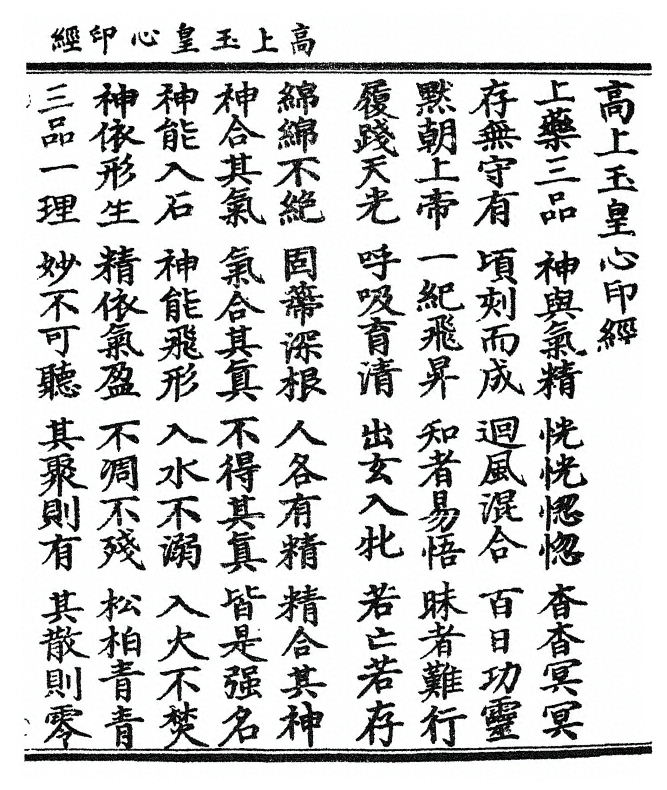 高上玉皇心印經
高上玉皇心印經
上藥三品 神與氣精 恍恍惚惚 杳杳冥冥
存無守有 頃刻而成 迴風混合 百日功靈
默朝上帝 一紀飛昇 知者易悟 昧者難行
履踐天光 呼吸育清 出玄入牝 若亡若存
綿綿不絕 固蔕深根 人各有精 精合其神
神合其氣 氣合其眞 不得其眞 皆是强名
神能入石 神能飛形 入水不溺 入火不焚
神依形生 精依氣盈 不凋不殘 松柏青青
三品一理 妙不可聽 其聚則有 其散則零